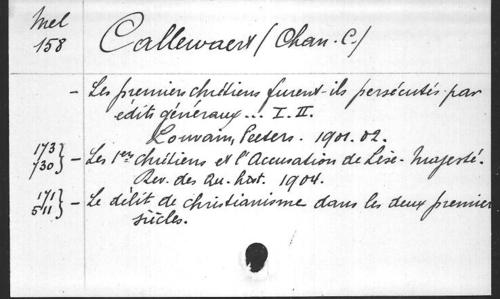 Mel
158
Callewaert (Chan. C.)
- Les premiers chrétiens furent-ils persécutés par
édits généraux ... I. II.
Louvain, Peeters. 1901. 02.
173
730 } - Les 1ers chrétiens et l'Accusation de Lèse-Majesté.
Rev. des Qu. hist. 1904.
171
511 } - Le délit de christianisme dans les deux premiers
siècles.